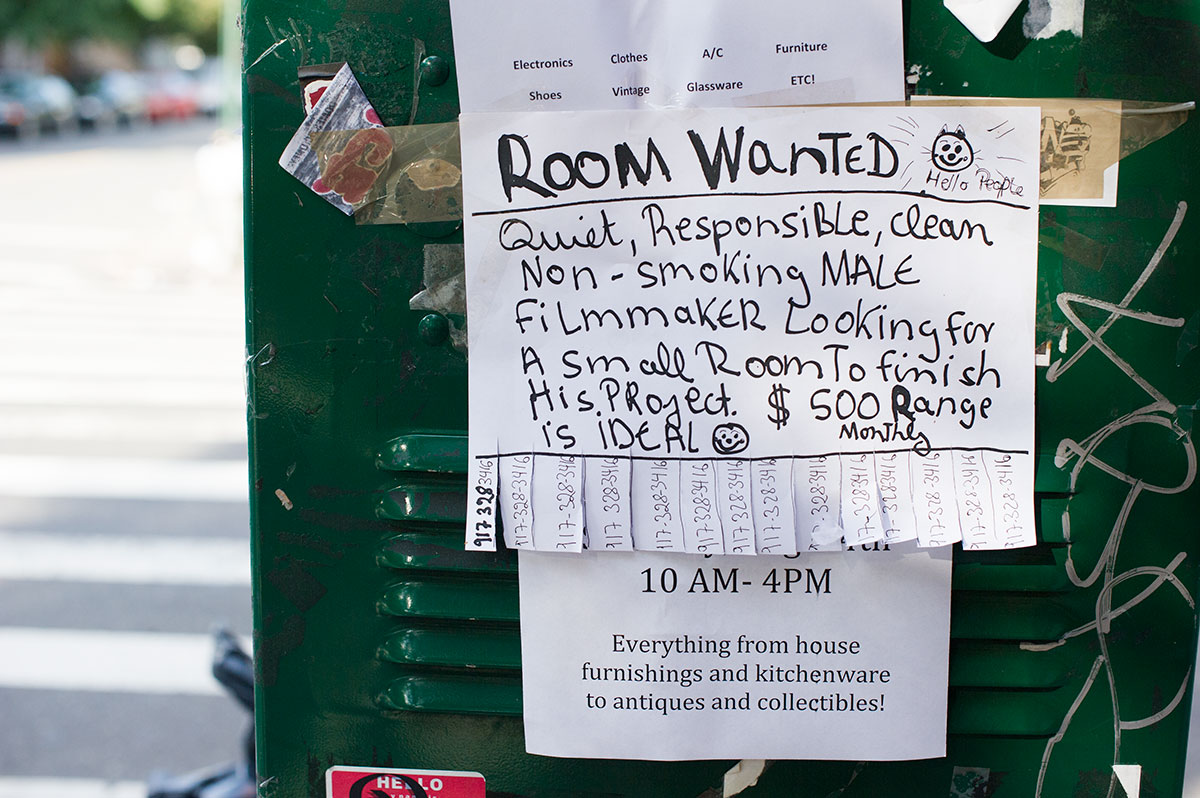 Electronics Clothes A/C Furniture
Shoes Vintage Glassware ETC!
ROOM WanTED
Hello People
Quiet, Responsible, clean
Non-smoking MALE
FiLmmaKER Looking for
A small Room To finish
His PRoject. $ 500 Range
is iDEAL Monthly
917 328 3416
917-328-3416
917-328-3416
917-328-3416
917-328-3416
917-328-3416
917-328-3416
917-328-3416
10 AM- 4PM
Everything from house
furnishings and kitchenware
to antiques and collectibles!
HELLO